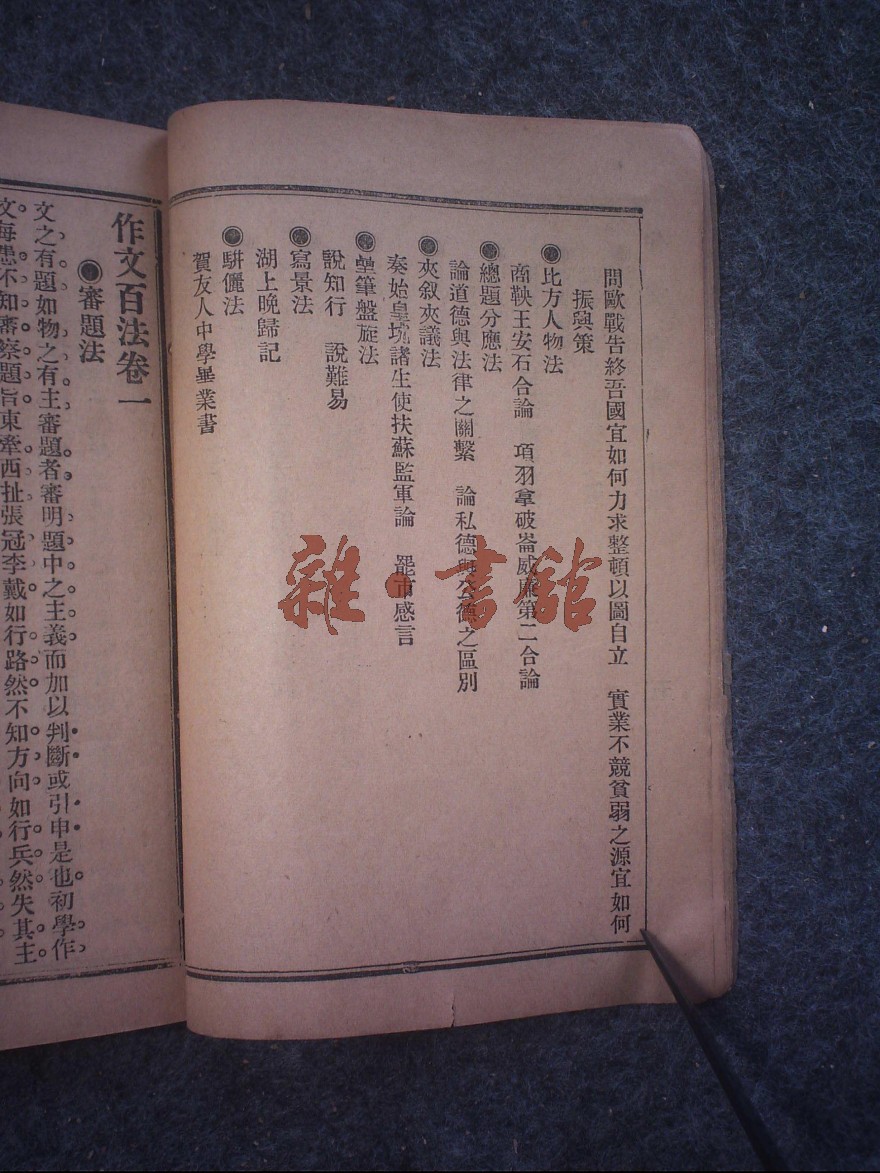 問歐戰告終吾國宜如何力求整頓以圖自立　實業不競貧弱之源宜如何
振興策
比方人物法
商鞅王安石合論　項羽拿破崙威廉第二合論
總題分應法
論道德與法律之關繫　論私德與公德之區別
夾叙夾議法
秦始皇坑諸生使扶蘇監軍論　罷市感言
壘筆盤旋法
說知行　說難易
寫景法
湖上晚歸記
駢儷法
賀友人中學畢業書
作文百法卷一
審題法
文之有題如物之有主審題者審明題中之主義而加以判斷或引申是也初學作
文每愚不知審察題旨東牽西扯張冠李戴如行路然不知方向如行兵然失其主
雜·書館